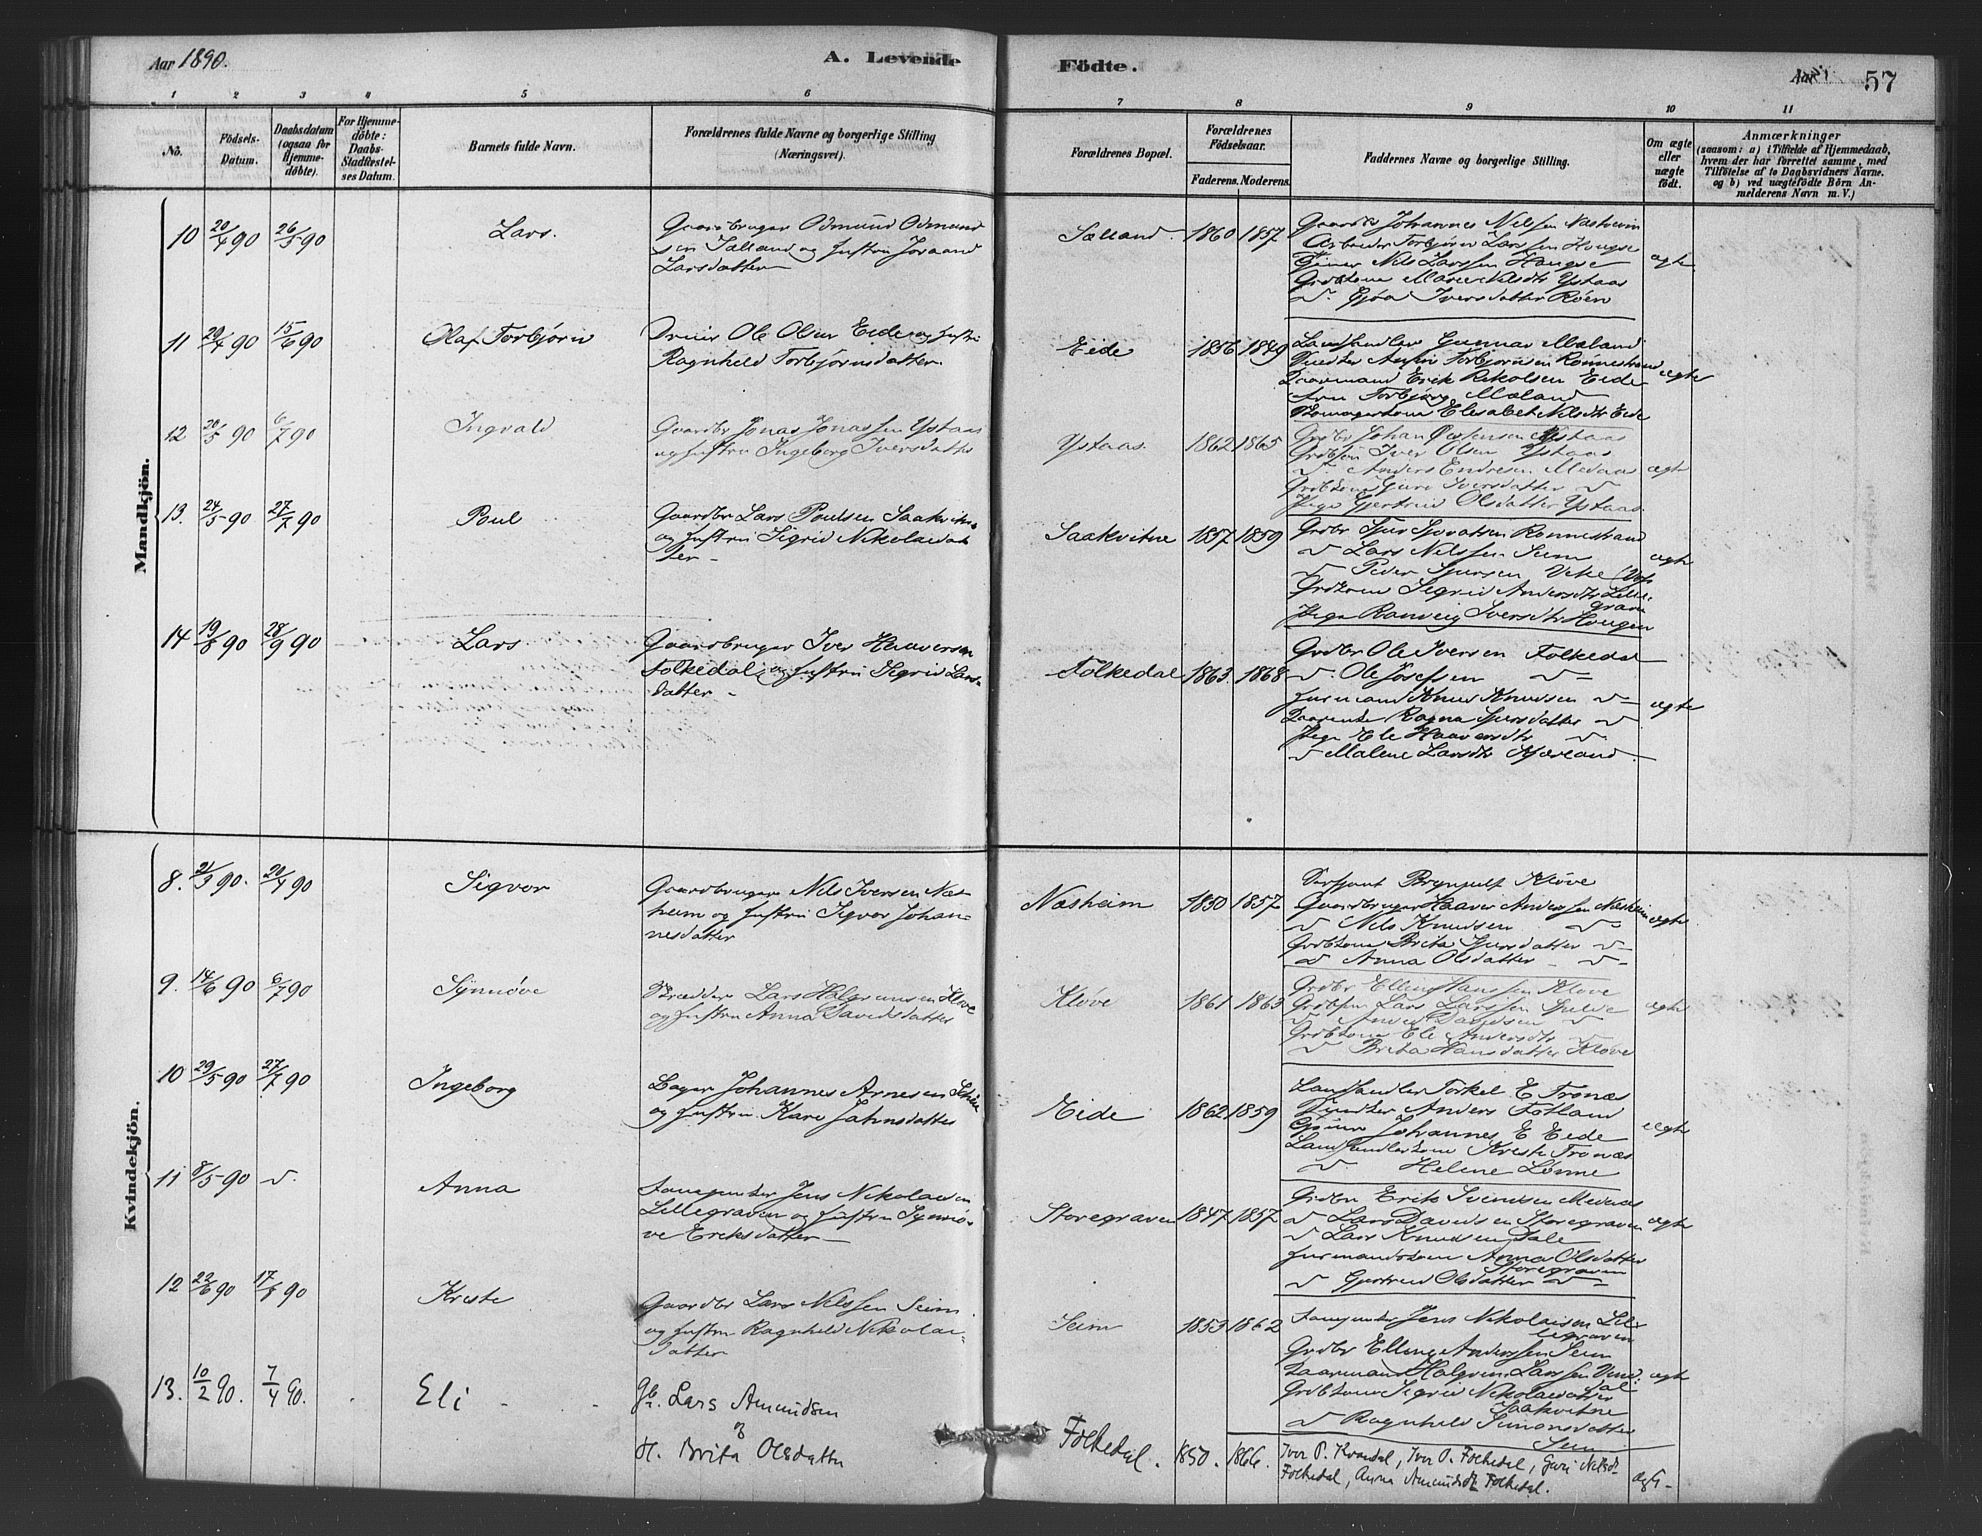 Aar 1890.
A. Levende
Födte.
Aar
57
1 2 3 4 5 6 7 8 9 10 11
No.
Födsels-
Datum.
Daabsdatum
(ogsaa for
Hjemme-
döbte).
For Hjemme-
döbte:
Daabs-
Stadfæstel-
ses Datum.
Barnets fulde Navn.
Forældrenes fulde Navne og borgerlige Stilling
(Næringsvei).
Forældrenes Bopæl.
Forældrenes
Födselsaar.
Faderens. Moderens.
Faddernes Navne og borgerlige Stilling.
Om ægte
eller
uægte
födt.
Anmærkninger
(saasom: a) i Tilfælde af Hjemmedaab,
hvem der har forrettet samme, med
Tilföielse af to Daabsvidners Navne.
og b) ved uægtefödte Börn An-
melderens Navn m. V.)
Mandkjön.
10 20/4 90 26/5 90 Lars.
Gaardbruger Odmund Odmund
sen Sælland og Hustru Joraand
Larsdatter
Sælland 1860 1857
Gaardbr Johannes Nilsen Næsheim
Arbeider Torbjørn Larssen Haugse
Tjener Nils Larssen Haugse
Grdbkone Marie Nilsdtr Ystaas
v. Gjøa Iversdatter Røen
ægte
11 29/4 90 15/6 90 Olaf Torbjørn
Ole Olsen Eide og Hustru
Ragnhild Torbjørnsdatter
Eide 1856 1849
Landhandler Gunnar Mæland
Torbjørnsen Rønnestrand
Daarmand Erik Rikolsen Eide
Fru Torbjørg Mæland
Skomagerkone Elisabet Nilsdtr Eide
ægte
12 20/5 90 6/7 90 Ingvald
Gaardbr Jonas Jonassen Ystaas
og Hustru Ingeborg Iversdatter
Ystaas 1862 1865
Grdbr Johan Ystaas
Grdbsøn Iver Olsen Ystaas
v. Anders Endresen Medaas
Grdbkone Guro Iversdatter v
Pige Gjertrud Olsdatter Ystaas
ægte
13. 24/5 90 27/7 90 Poul
Gaardbr Lars Poulsen Saakvitne
og Hustru Sigrid Nikolaidat
ter
Saakvitne 1857 1859
Grdbr Sjur Sjovatsen Rønnestrand
v Lars Nilssen Seim
v Peder Sjursen Veke (Vos
Grdkone Sigrid Andersdtr Lille-
graven
Pige Ranveig Iversdtr Hougen
ægte
14 19/8 90 28/9 90 Lars
Gaardbruger Iver Haaversen
Folkedal og Hustru Sigrid Lars-
datter
Folkedal 1863. 1868
Grdbr Ole Iversen Folkedal
v. Ole Josefsen v
Husmand Knud Knudsen v
Ragna Sjursdatter v
Pige Eli Haaversdtr v.
v Malene Larsdtr Kjærland
ægte
Kvindekjön.
8. 21/3 90. 20/4 90 Sigvor
Gaardbruger Nils Iversen Næs-
heim og Hustru Sigvor Johan-
nesdatter
Næsheim 1850 1857
Serjant Brynjulf Kløve
Gaardbruger Haaver Anderssen Næsheim
v Nils Knudsen v
Grdbkone Brita Sjursdatter v
v Anna Olsdatter v
ægte
9. 14/6 90 6/7 90 Synnøve
Skrædder Lars Halgrimsen Kløve
og Hustru Anna Davidsdatter
Kløve 1861 1863
Grdbr Elling Hanssen Kløve
Grdbsøn Lars Larssen
v Davidsen v
Grdbkone Eli Andersdtr v
v Brita Hansdatter Kløve
ægte
10 29/5 90 27/7 90 Ingeborg
Bager Johannes Arnesen
og Hustru Kari Jahnsdatter
Eide 1862 1859
Landhandler Torkel E Tronæs
Anders Fotland
Johannes E Eide
Landhandlerkone Kristi Tronæs
v. Helene Lønne
ægte
11 8/5 90 v. Anna
Jens Nikolaisen
Lillegraven og Hustru Synnø-
ve Eriksdatter
Storegraven 1847 1857
Grdbr Erik Svendsen Medaas
v Lars Davidsen Storegraven
v Lars Knudsen Dale
Husmandskone Anna Olsdatter
Storegraven
v Gjertrud Olsdatter v
ægte
12 22/6 90 17/8 90 Kristi
Gaardbr Lars Nilssen Seim
og Hustru Ragnhild Nikolai-
datter
Seim 1853 1862
Jens Nikolaisen Lil-
legraven
Grdbr Elling Anderssen Seim
Daarmand Halgrim Larssen
Grdbkone Sigrid Nikolaidatter
Saakvitne
v Ragnhild Simonsdatter
Seim
ægte
13. 10/2 90. 7/4 90. Eli
Gb. Lars Amundsen
og
H. Brita Olsdatter
Folkedal. 1850. 1866.
Iver P. Kvandal, Iver O. Folkedal, Guri Nilsd.
Folkedal, Anna Amundsdtr Folkedal.
ægt